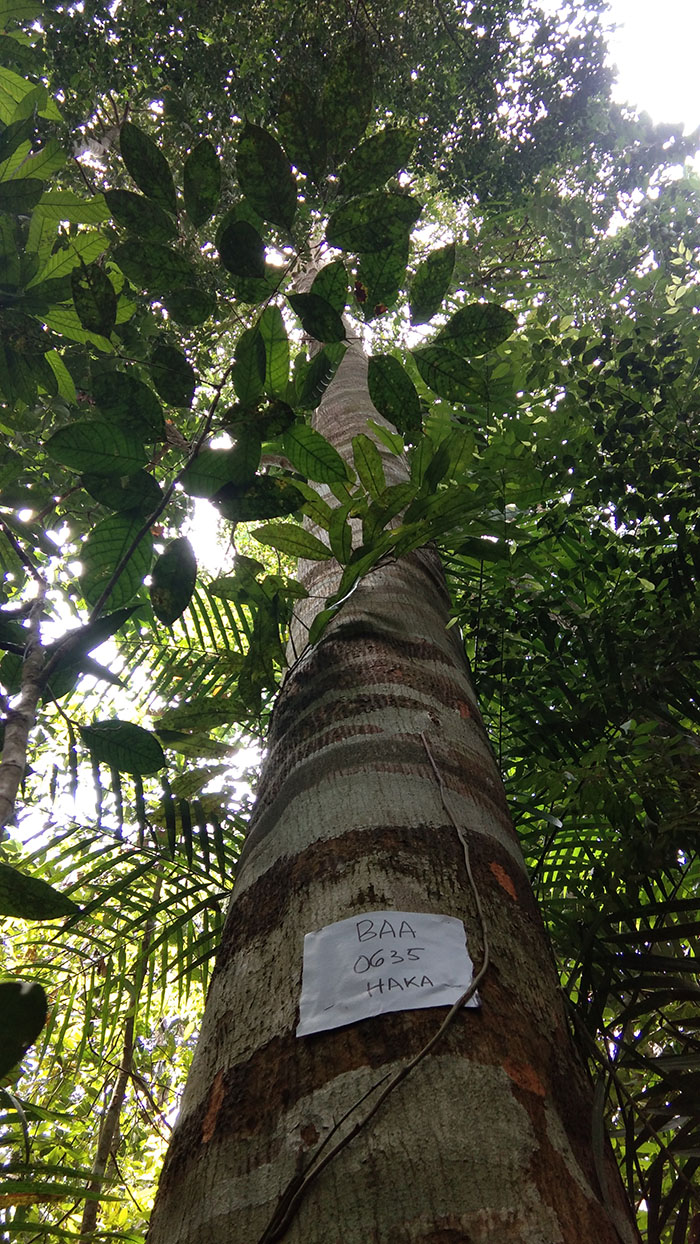 BAA
0635
HAKA